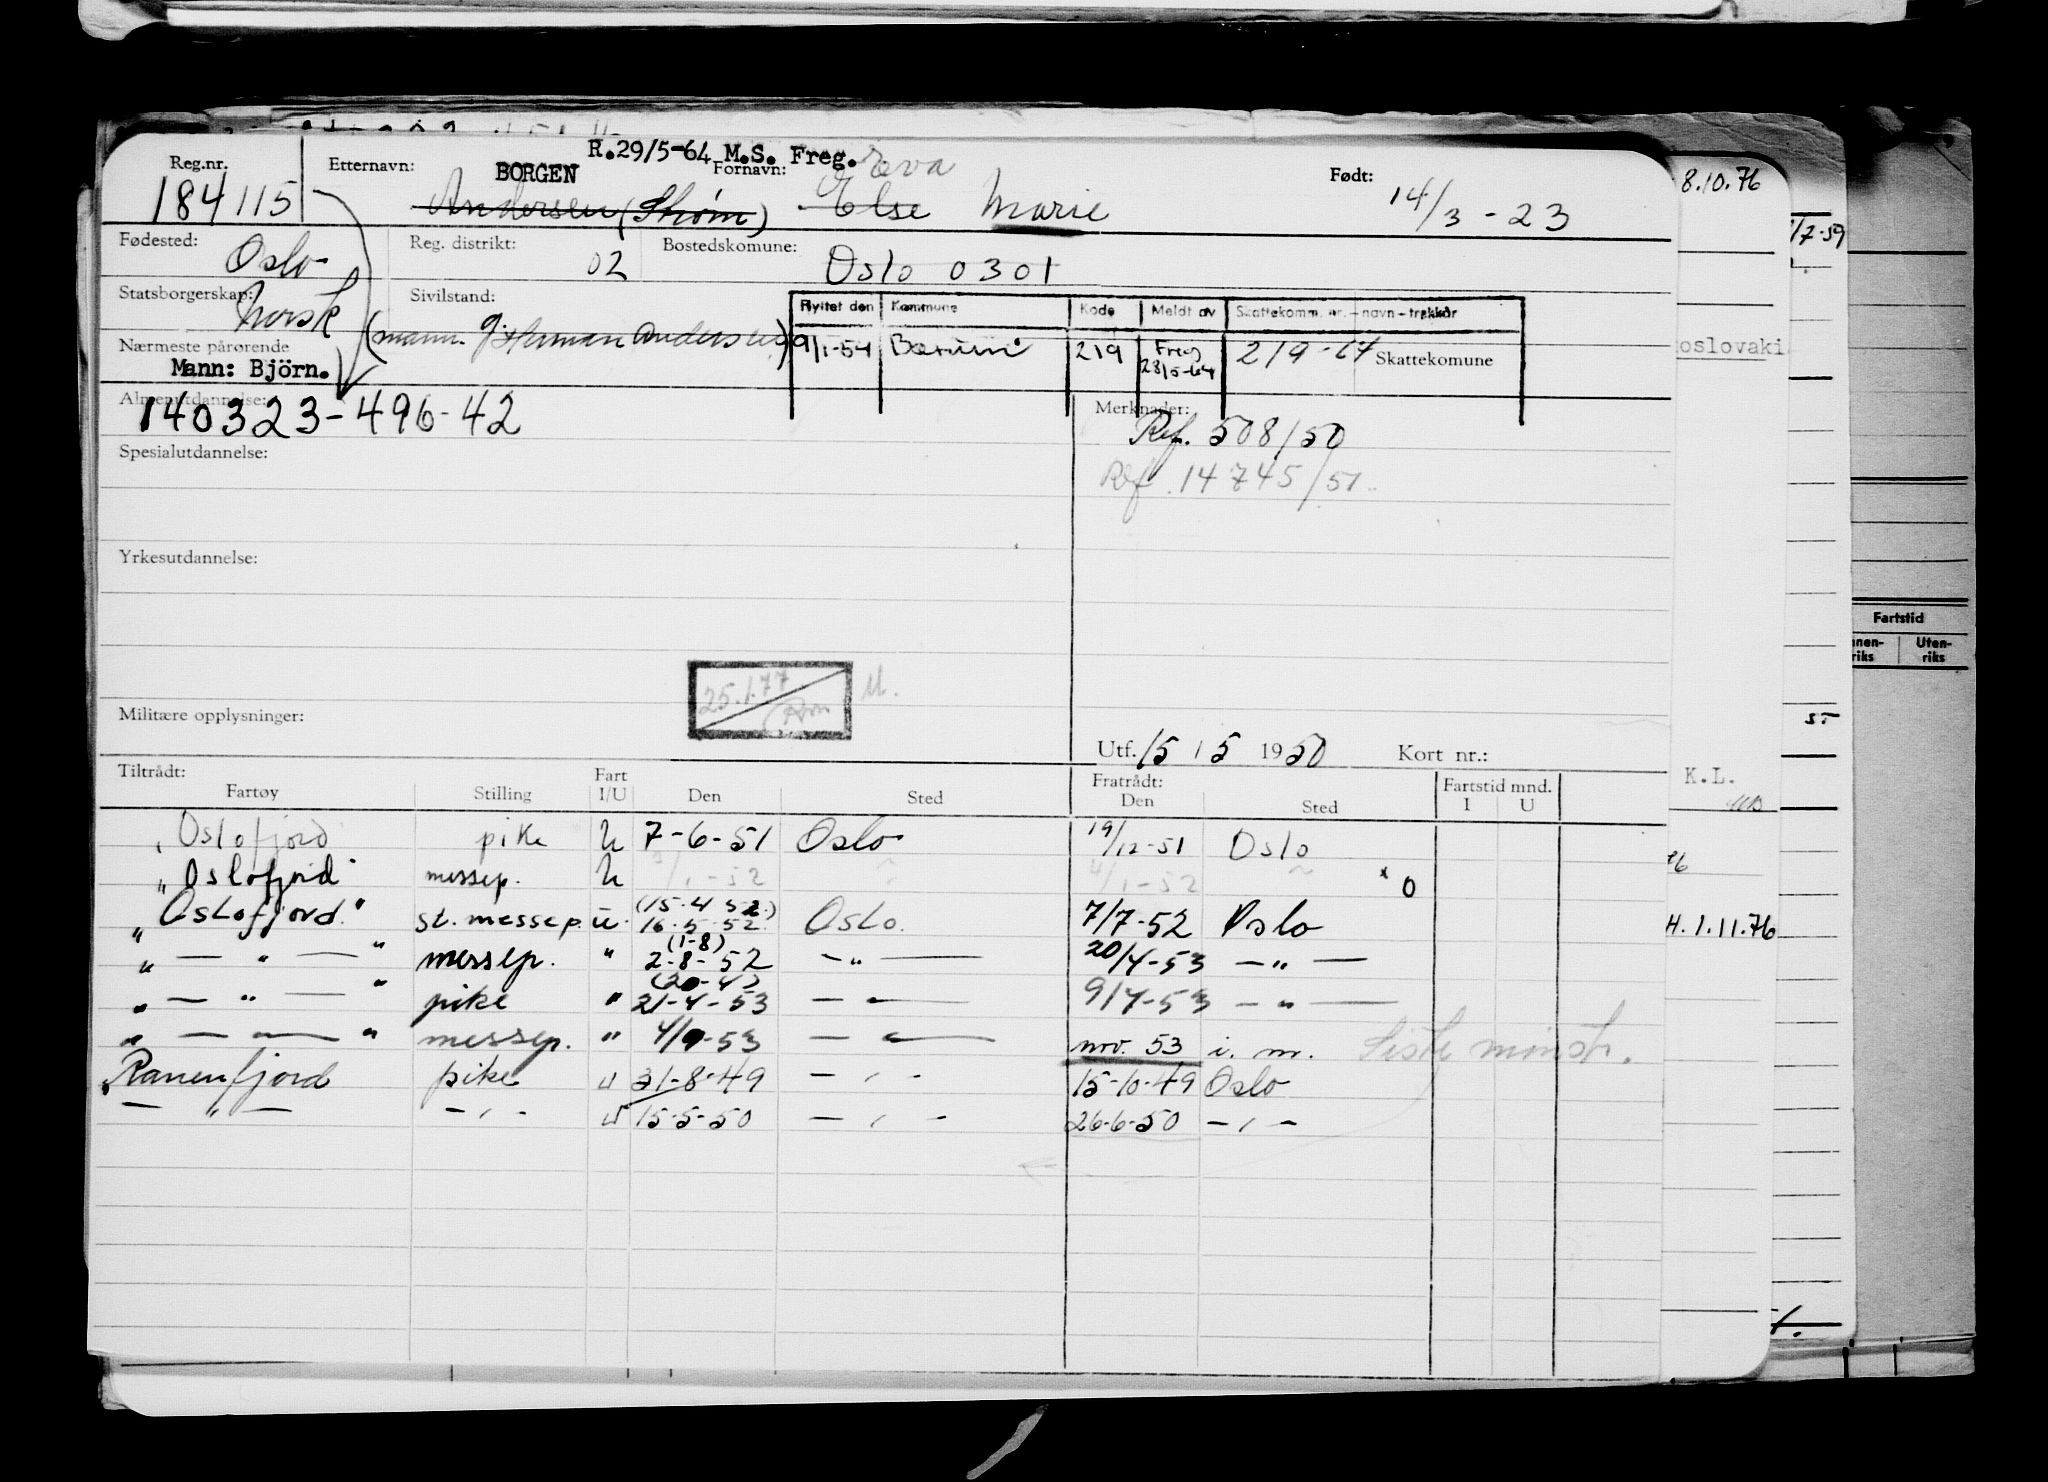 R.29/5-64 M.S. Freg.
Reg.nr. Etternavn: BORGEN Fornavn: Eva Født:
184115 Andersen (Strøm) Else Marie 14/3-23
Fødested: Oslo Reg. distrikt: 02 Bostedskomune: Oslo 0301
Statsborgerskap: Norsk Sivilstand:
Flyttet den Kommune Kode Meldt av Skattekomm. nr. - navn - trekkår
9/1-54 Bærum 219 Freg 28/5-64 219-64 Skattekomune
Nærmeste pårørende
Mann: Björn.
Almenutdannelse: Merknader:
140323-496-42 Ref. 508/50
Spesialutdannelse:
Ref. 14745/51
Yrkesutdannelse:
25.1.77
Militære opplysninger:
Utf. 15/5 1950 Kort nr.:
Tiltrådt: Fratrådt: Fartstid mnd.
Fartøy Stilling Fart I/U Den Sted Den Sted I U
"Oslofjord pike U 7-6-51 Oslo 19/12-51 Oslo
"Oslofjord" messep. U /1-52 4/1-52 * 0
"Oslofjord." st. messep. u. (15.4.52.) 16.5.52. Oslo. 7/7-52 Oslo
" — " — " messep. " (1-8) 2-8-52 — " — 20/4-53 — " —
" — " — " pike " (20-4) 21-4-53 — " — 9/7-53 — " —
" — " — " messep. " 4/9-53 — " — nov. 53 i. m. Siste mønstr.
Ranenfjord pike U 31-8-49 — " — 15-10-49 Oslo
— " — — " — U 15-5-50 — " — 26-6-50 — " —
8.10.76
/7-59
oslovaki
Fartstid
Innen-riks Uten-riks
55
K.L.
76
H. 1.11.76